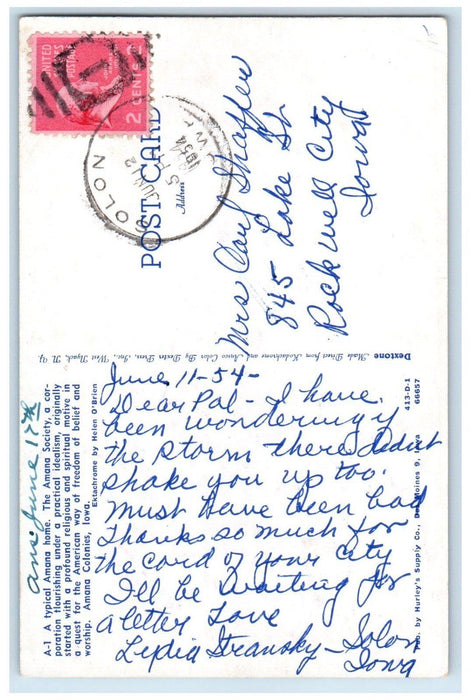 UNITED STATES POSTAGE
2 CENTS 2
SOLON
JUN 12
5 PM
1954
IOWA
POST CARD
Address
Mrs Carl Shaffer
845 Lake St
Rockwell City
Iowa
Dextone Made Direct from Kodachrome and Ansco Color By Dexter Press, Inc., West Nyack, N. Y.
June 11-54-
Dear Pal - I have
been wondering if
the storm there didnt
shake you up too.
Must have been bad
Thanks so much for
the card of your city
I'll be waiting for
a letter Love
Lydia Stransky - Solon
Iowa
ans June 17th
A-1 A typical Amana home. The Amana Society, a cor-
poration flourishing under a practical idealism, originally
started with a profound religious and spiritual motive in
a quest for the American way of freedom of belief and
worship. Amana Colonies, Iowa.
Ektachrome by Helen O'Brien
413-D-1
66657
Pub. by Hurley's Supply Co., Des Moines 9, Iowa